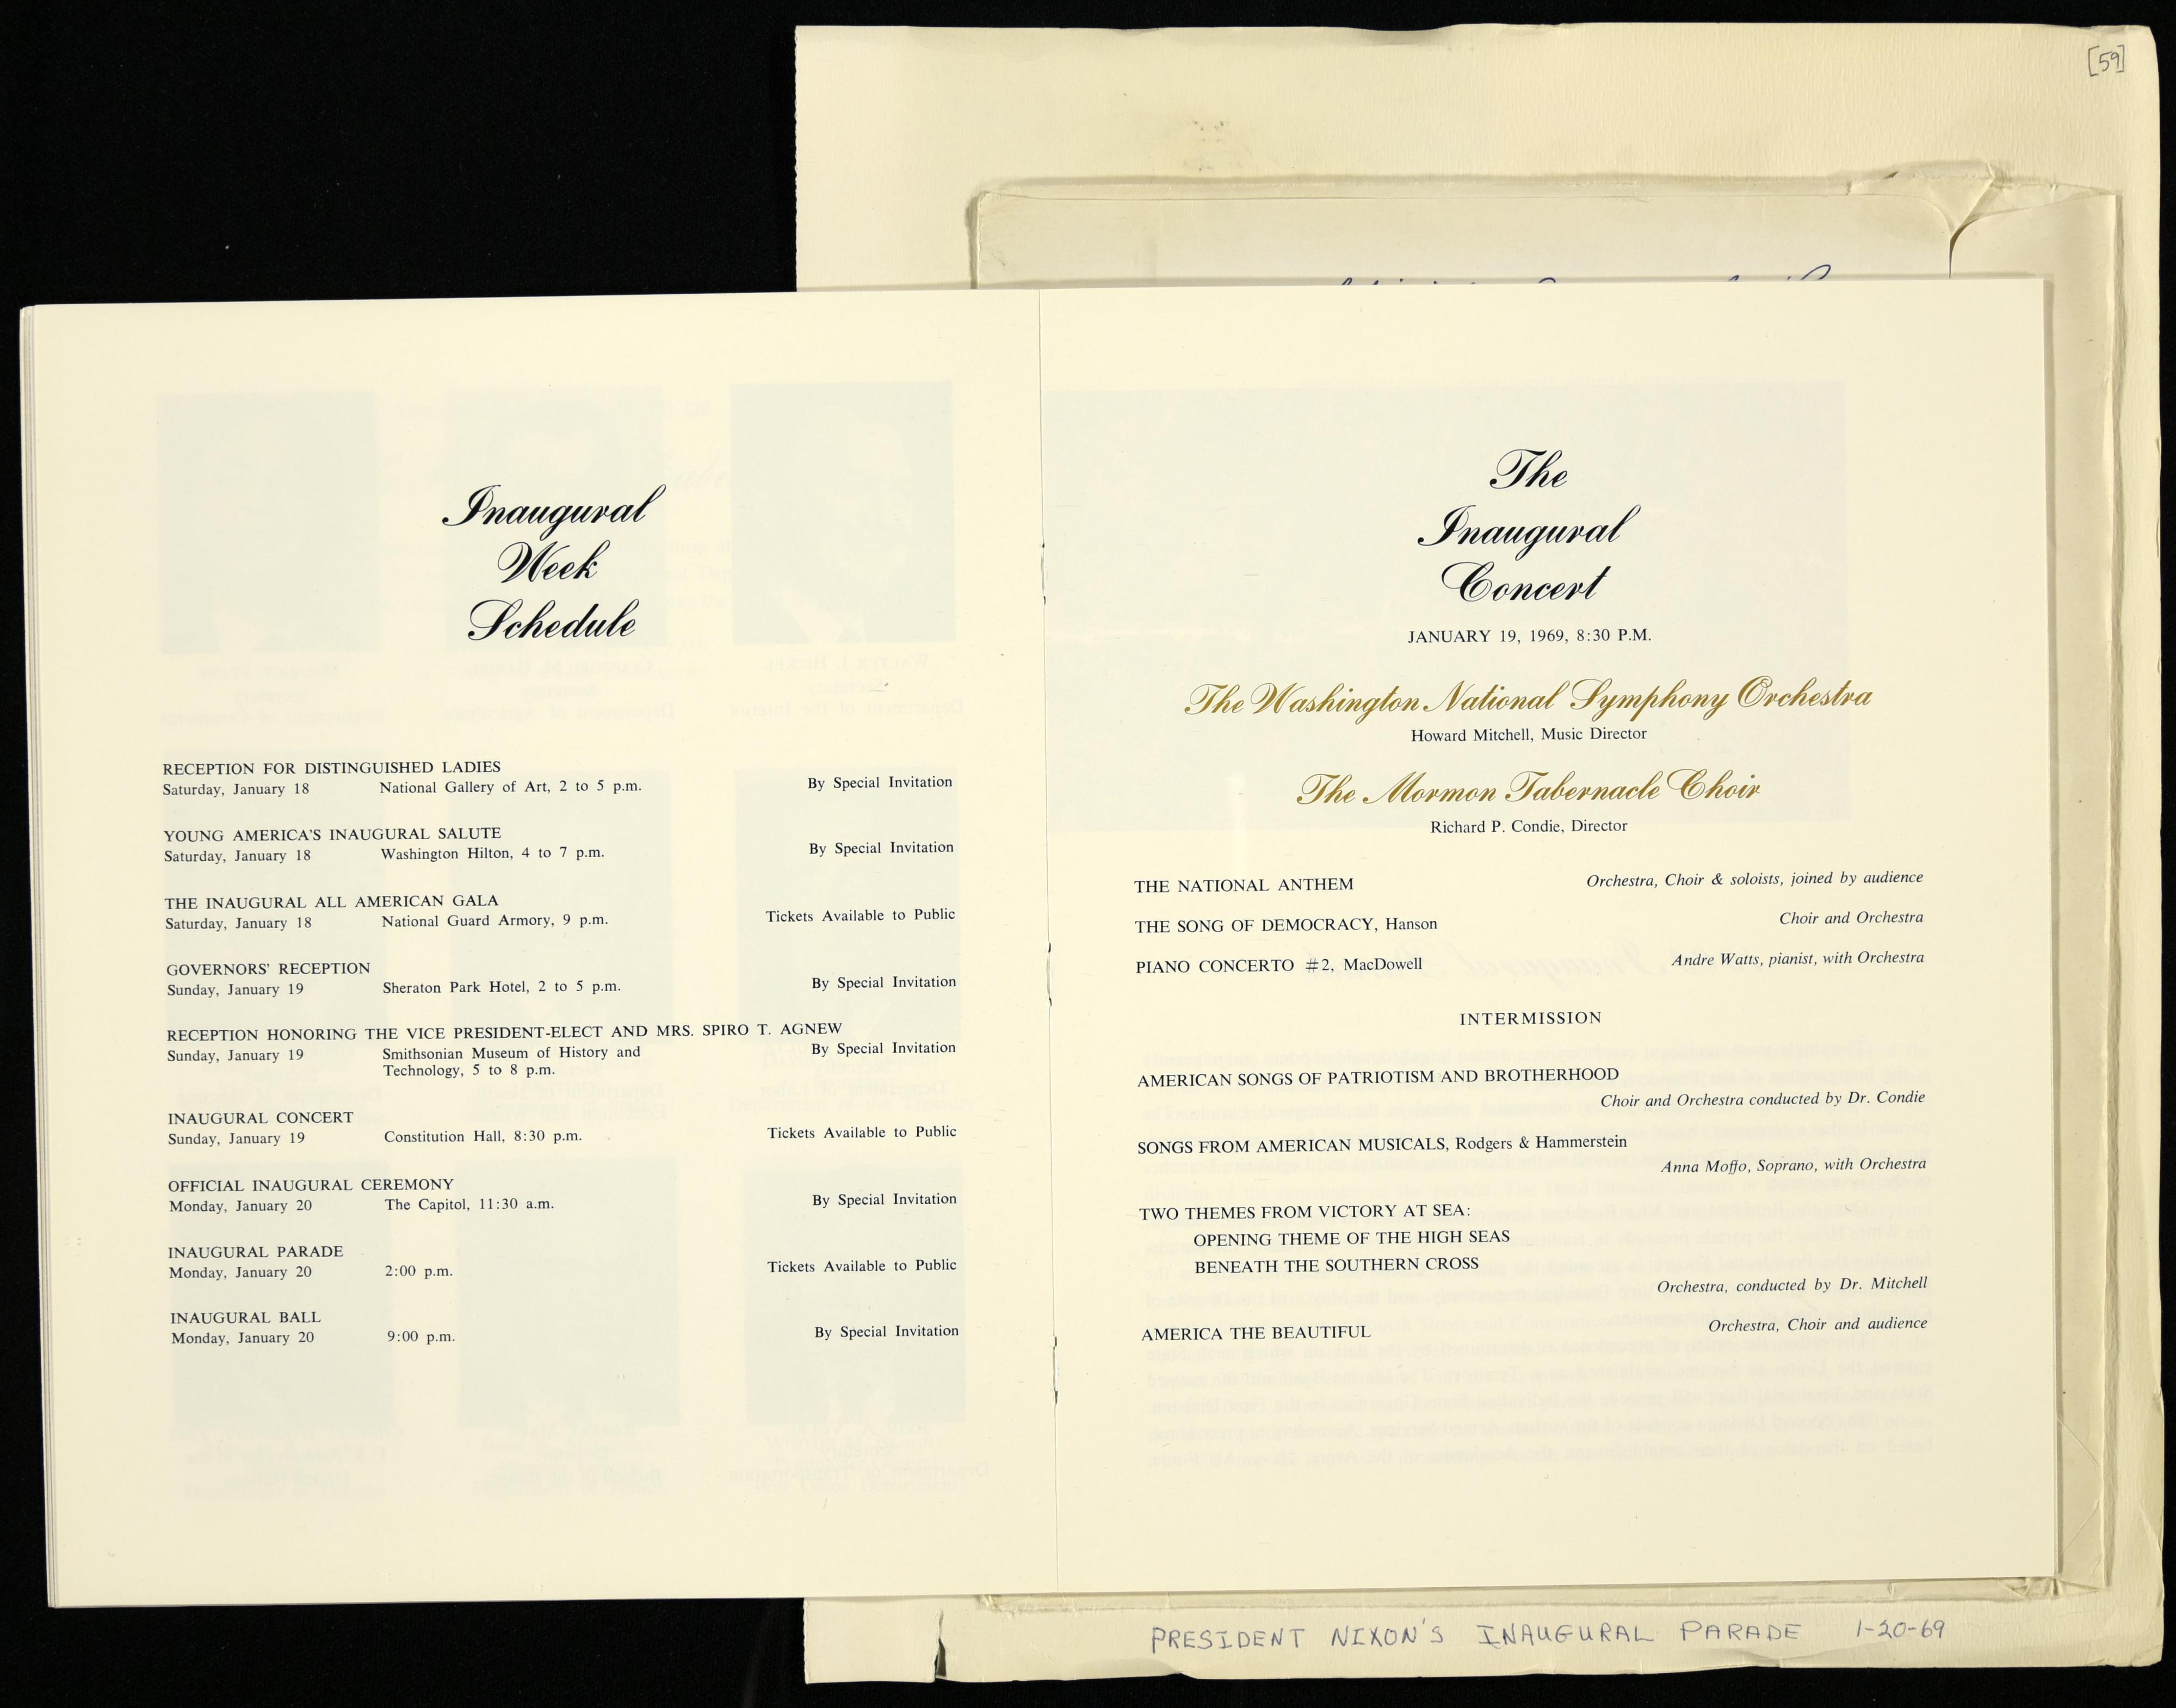 [59]
Inaugural
Week
Schedule
RECEPTION FOR DISTINGUISHED LADIES
Saturday, January 18 National Gallery of Art, 2 to 5 p.m. By Special Invitation
YOUNG AMERICA'S INAUGURAL SALUTE
Saturday, January 18 Washington Hilton, 4 to 7 p.m. By Special Invitation
THE INAUGURAL ALL AMERICAN GALA
Saturday, January 18 National Guard Armory, 9 p.m. Tickets Available to Public
GOVERNORS' RECEPTION
Sunday, January 19 Sheraton Park Hotel, 2 to 5 p.m. By Special Invitation
RECEPTION HONORING THE VICE PRESIDENT-ELECT AND MRS. SPIRO T. AGNEW
Sunday, January 19 Smithsonian Museum of History and By Special Invitation
Technology, 5 to 8 p.m.
INAUGURAL CONCERT
Sunday, January 19 Constitution Hall, 8:30 p.m. Tickets Available to Public
OFFICIAL INAUGURAL CEREMONY
Monday, January 20 The Capitol, 11:30 a.m. By Special Invitation
INAUGURAL PARADE
Monday, January 20 2:00 p.m. Tickets Available to Public
INAUGURAL BALL
Monday, January 20 9:00 p.m. By Special Invitation
The
Inaugural
Concert
JANUARY 19, 1969, 8:30 P.M.
The Washington National Symphony Orchestra
Howard Mitchell, Music Director
The Mormon Tabernacle Choir
Richard P. Condie, Director
THE NATIONAL ANTHEM Orchestra, Choir & soloists, joined by audience
THE SONG OF DEMOCRACY, Hanson Choir and Orchestra
PIANO CONCERTO #2, MacDowell Andre Watts, pianist, with Orchestra
INTERMISSION
AMERICAN SONGS OF PATRIOTISM AND BROTHERHOOD
Choir and Orchestra conducted by Dr. Condie
SONGS FROM AMERICAN MUSICALS, Rodgers & Hammerstein
Anna Moffo, Soprano, with Orchestra
TWO THEMES FROM VICTORY AT SEA:
OPENING THEME OF THE HIGH SEAS
BENEATH THE SOUTHERN CROSS
Orchestra, conducted by Dr. Mitchell
AMERICA THE BEAUTIFUL Orchestra, Choir and audience
PRESIDENT NIXON'S INAUGURAL PARADE 1-20-69